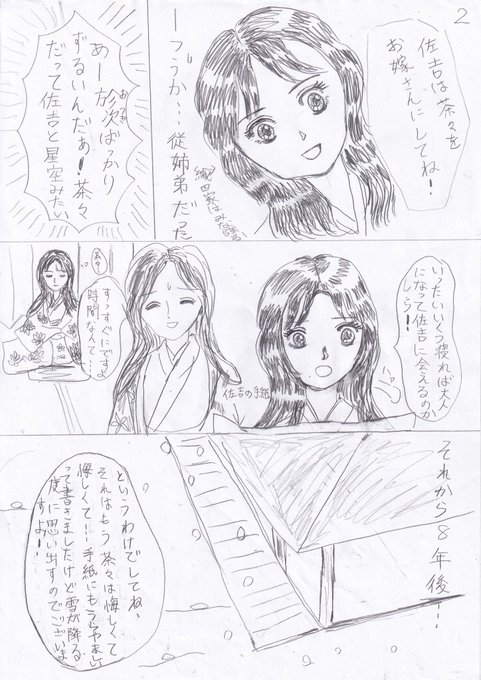 2
佐吉は茶々を
お嫁さんにしてね!
ーつうか…従姉弟だった
あー於次ばっかり
ずるいんだぁ!茶々
だって佐吉と星空みたい
いったいいくつ寝れば大人
になって佐吉に会えるのか
しら!
佐吉の手紙
すっすぐにですよ
時間なんて…
それから8年後…
というわけでしてね、
それはもう茶々は悔しくて
悔しくて…手紙にもうらやましい
って書きましたけど雪が降る
度に思い出すのでございま
すよ!